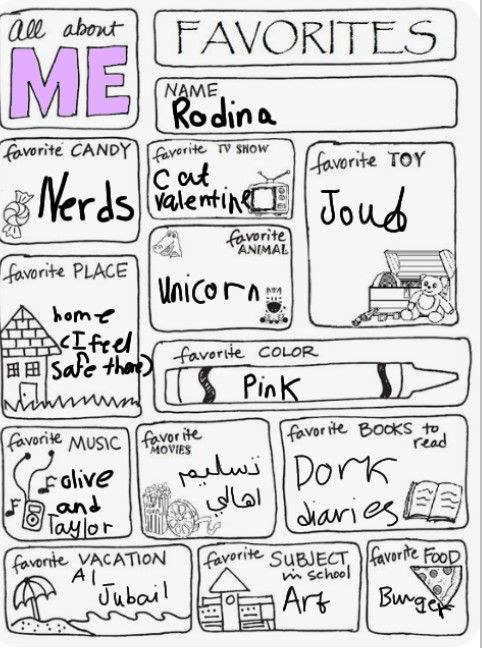 All about
ME
FAVORITES
NAME
Rodina
favorite CANDY
Nerds
favorite TV SHOW
Cat
Valentine
favorite TOY
Joud
favorite PLACE
home
(I feel
safe there)
favorite
ANIMAL
Unicorn
favorite COLOR
Pink
favorite MUSIC
olive
and
Taylor
favorite
MOVIES
تسليم
اهالي
favorite BOOKS to
read
Dork
diaries
favorite VACATION
Al
Jubail
favorite SUBJECT
in school
Art
favorite FOOD
Burger